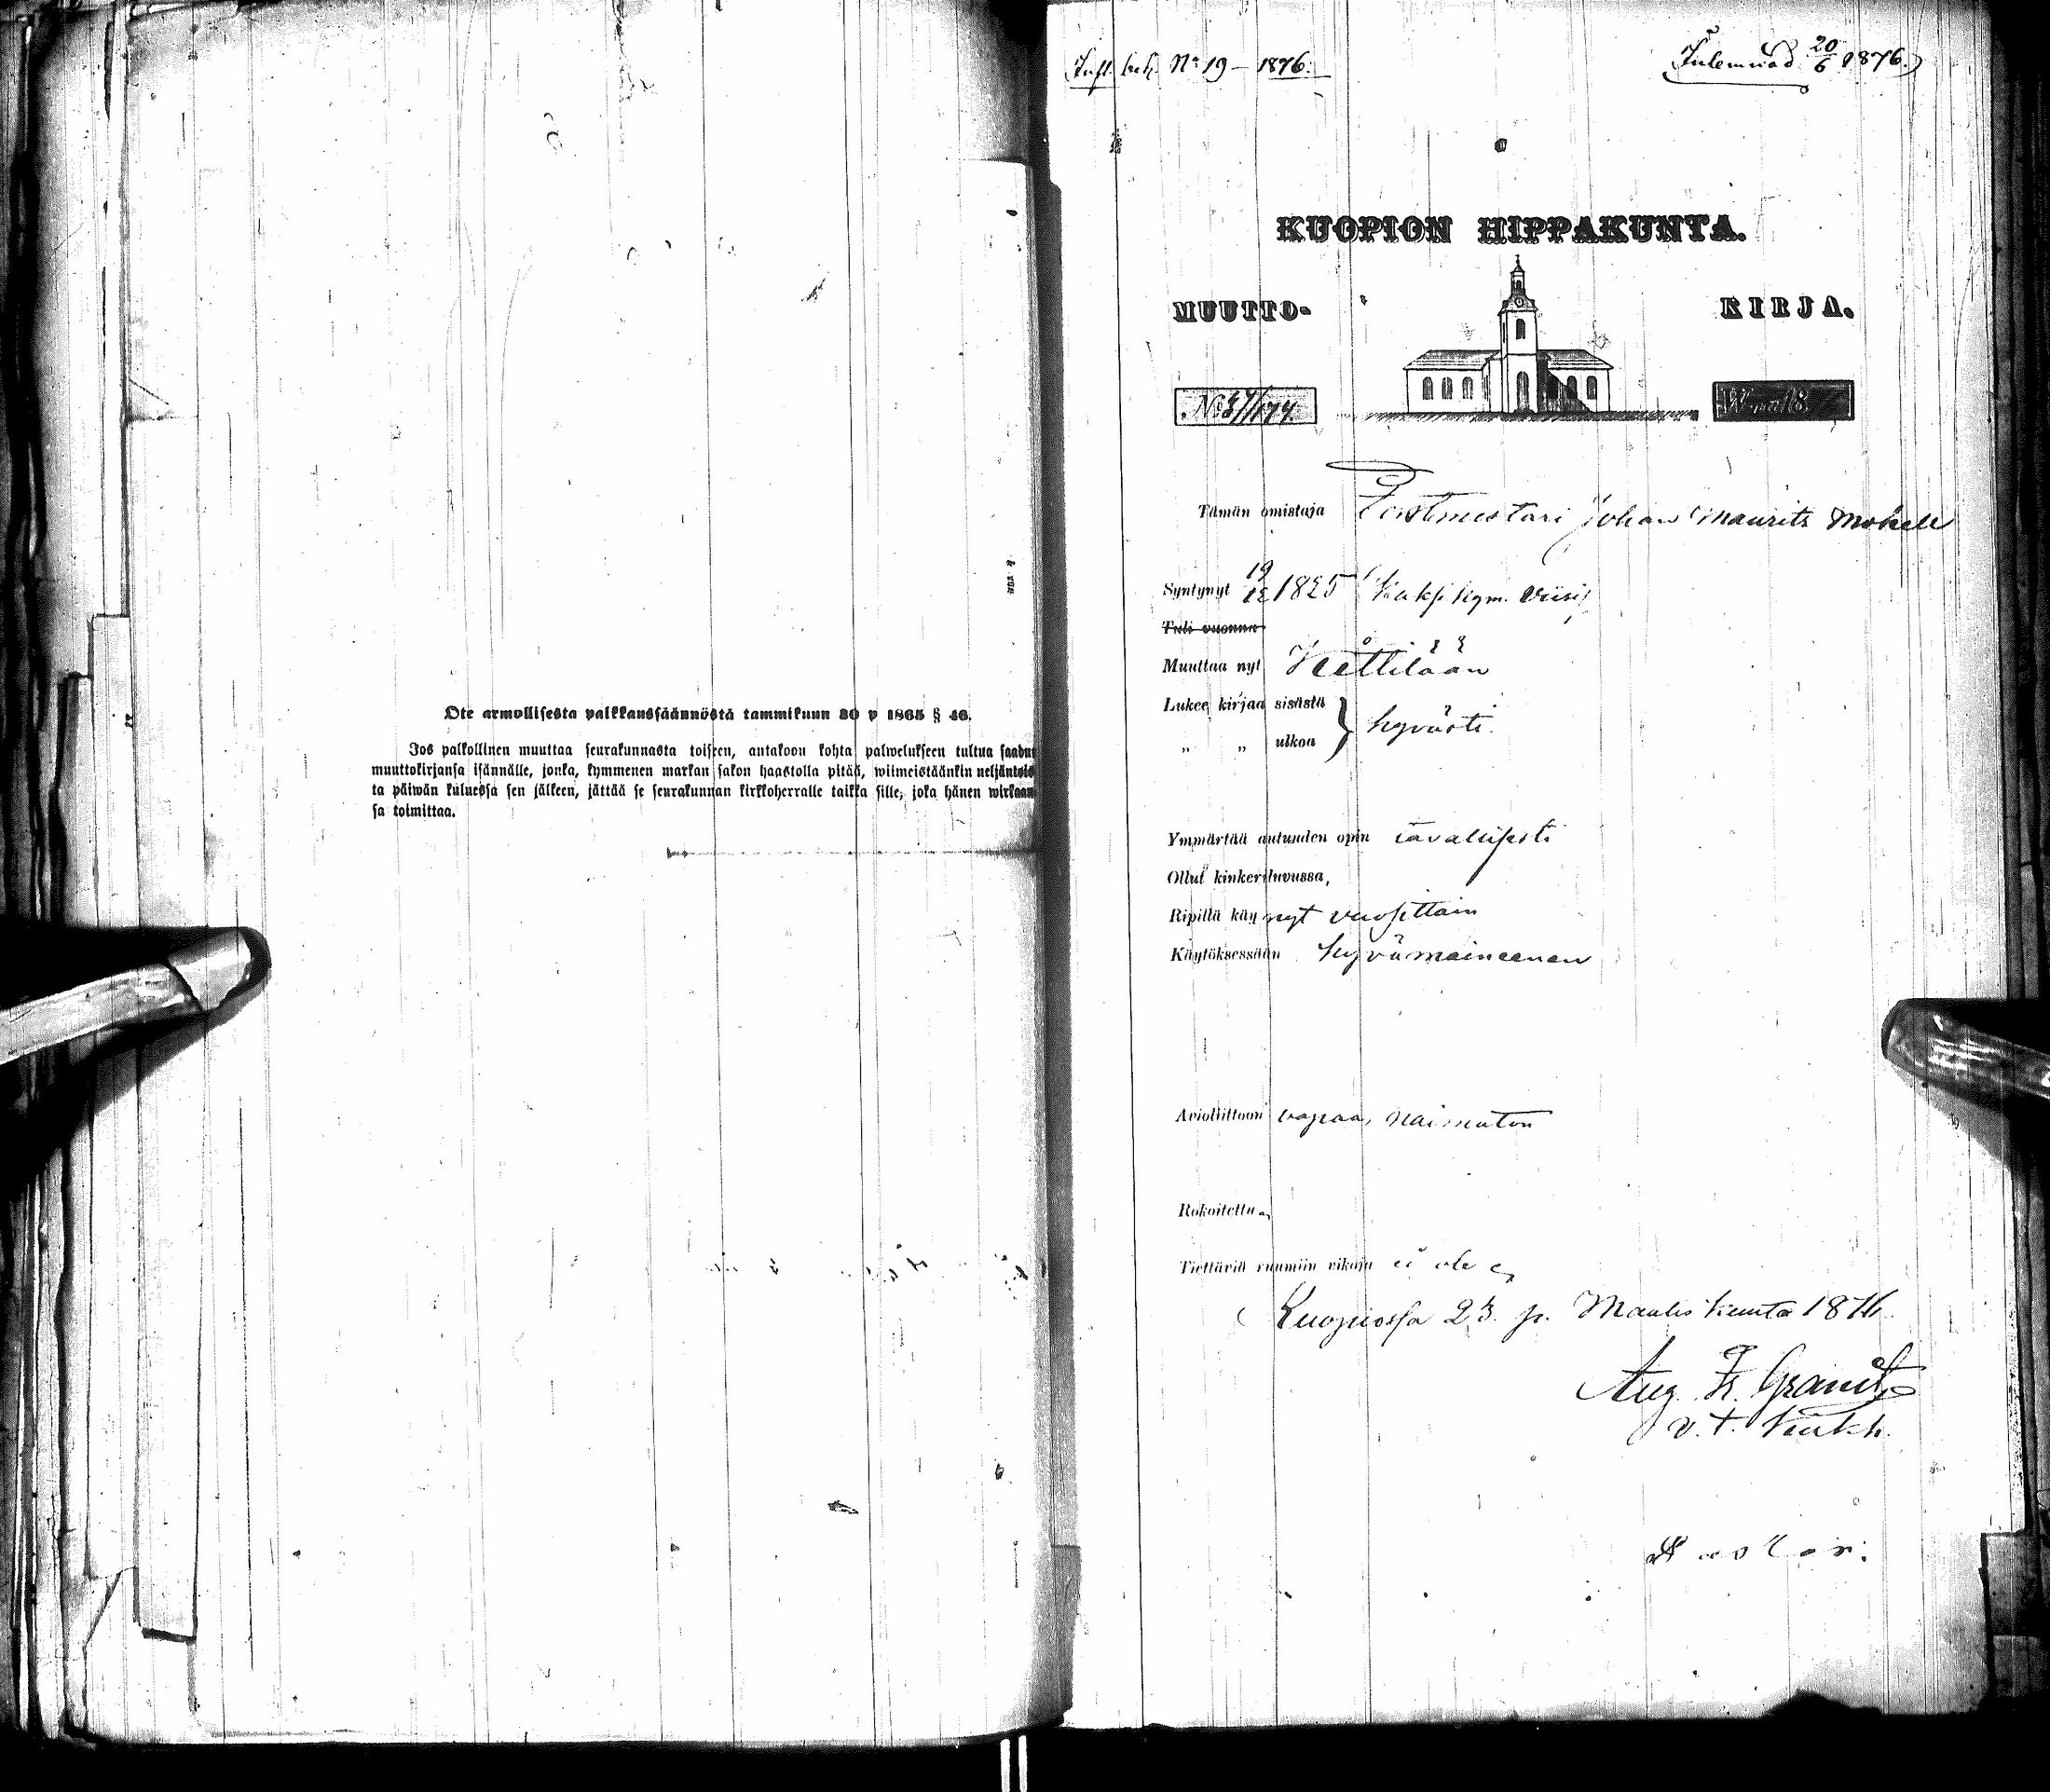 Ote armollisesta palkkaussäännöstä tammikuun 30 p 1865 § 46.
Jos palkollinen muuttaa seurakunnasta toiseen, antakoon kohta palwelukseen tultua saadun
muuttokirjansa isännälle, jonka, kymmenen markan sakon haastolla pitää, wiimeistäänkin neljäntois
ta päiwän kuluessa sen jälkeen, jättää se seurakunnan kirkkoherralle taikka sille, joka hänen wirkaan
sa toimittaa.
Infl. bch. No 19 - 1876.
20/6 1876.
KUOPION HIPPAKUNTA.
MUUTTO- KIRJA.
No
W:na 18
Tämän omistaja Forstmestari Johan Maurits Mokell
Syntynyt 19/12 1825 Kaksikym. viisi
Tuli vuonna
Muuttaa nyt Kittilään
Lukee kirjaa sisästä
„ „ ulkoa } hyvästi.
Ymmärtää autuuden opin tavallisesti
Ollut kinkeriluvussa,
Ripillä käynyt vuosittain
Käytöksessään hyvämaineenen
Avioliittoon vapaa, naimaton
Rokoitettu
Tiettäviä ruumiin vikoja ei ole
Kuopiossa 23. p. Maaliskuuta 1876.
Aug. Fr. Granit
v. t. Kirkh.